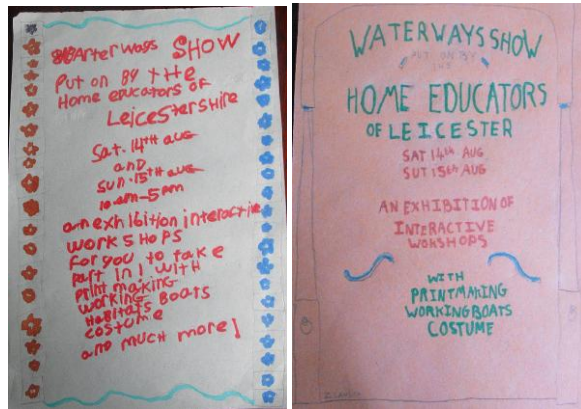 WATerways SHOW
PUT ON BY THE
Home educators of
Leicestershire
Sat. 14TH aug
and
Sun. 15th aug
10 am-5pm
an exhibition interactive
WORKSHOPS
For you to take
part in! with
printmaking
working
Habitats Boats
costume
and much more!
WATERWAYS SHOW
PUT ON BY
THE
HOME EDUCATORS
OF LEICESTER
SAT 14th AUG
SUT 15th AUG
AN EXHIBITION OF
INTERACTIVE
WOKSHOPS
WITH
PRINTMAKING
WORKING BOATS
COSTUME